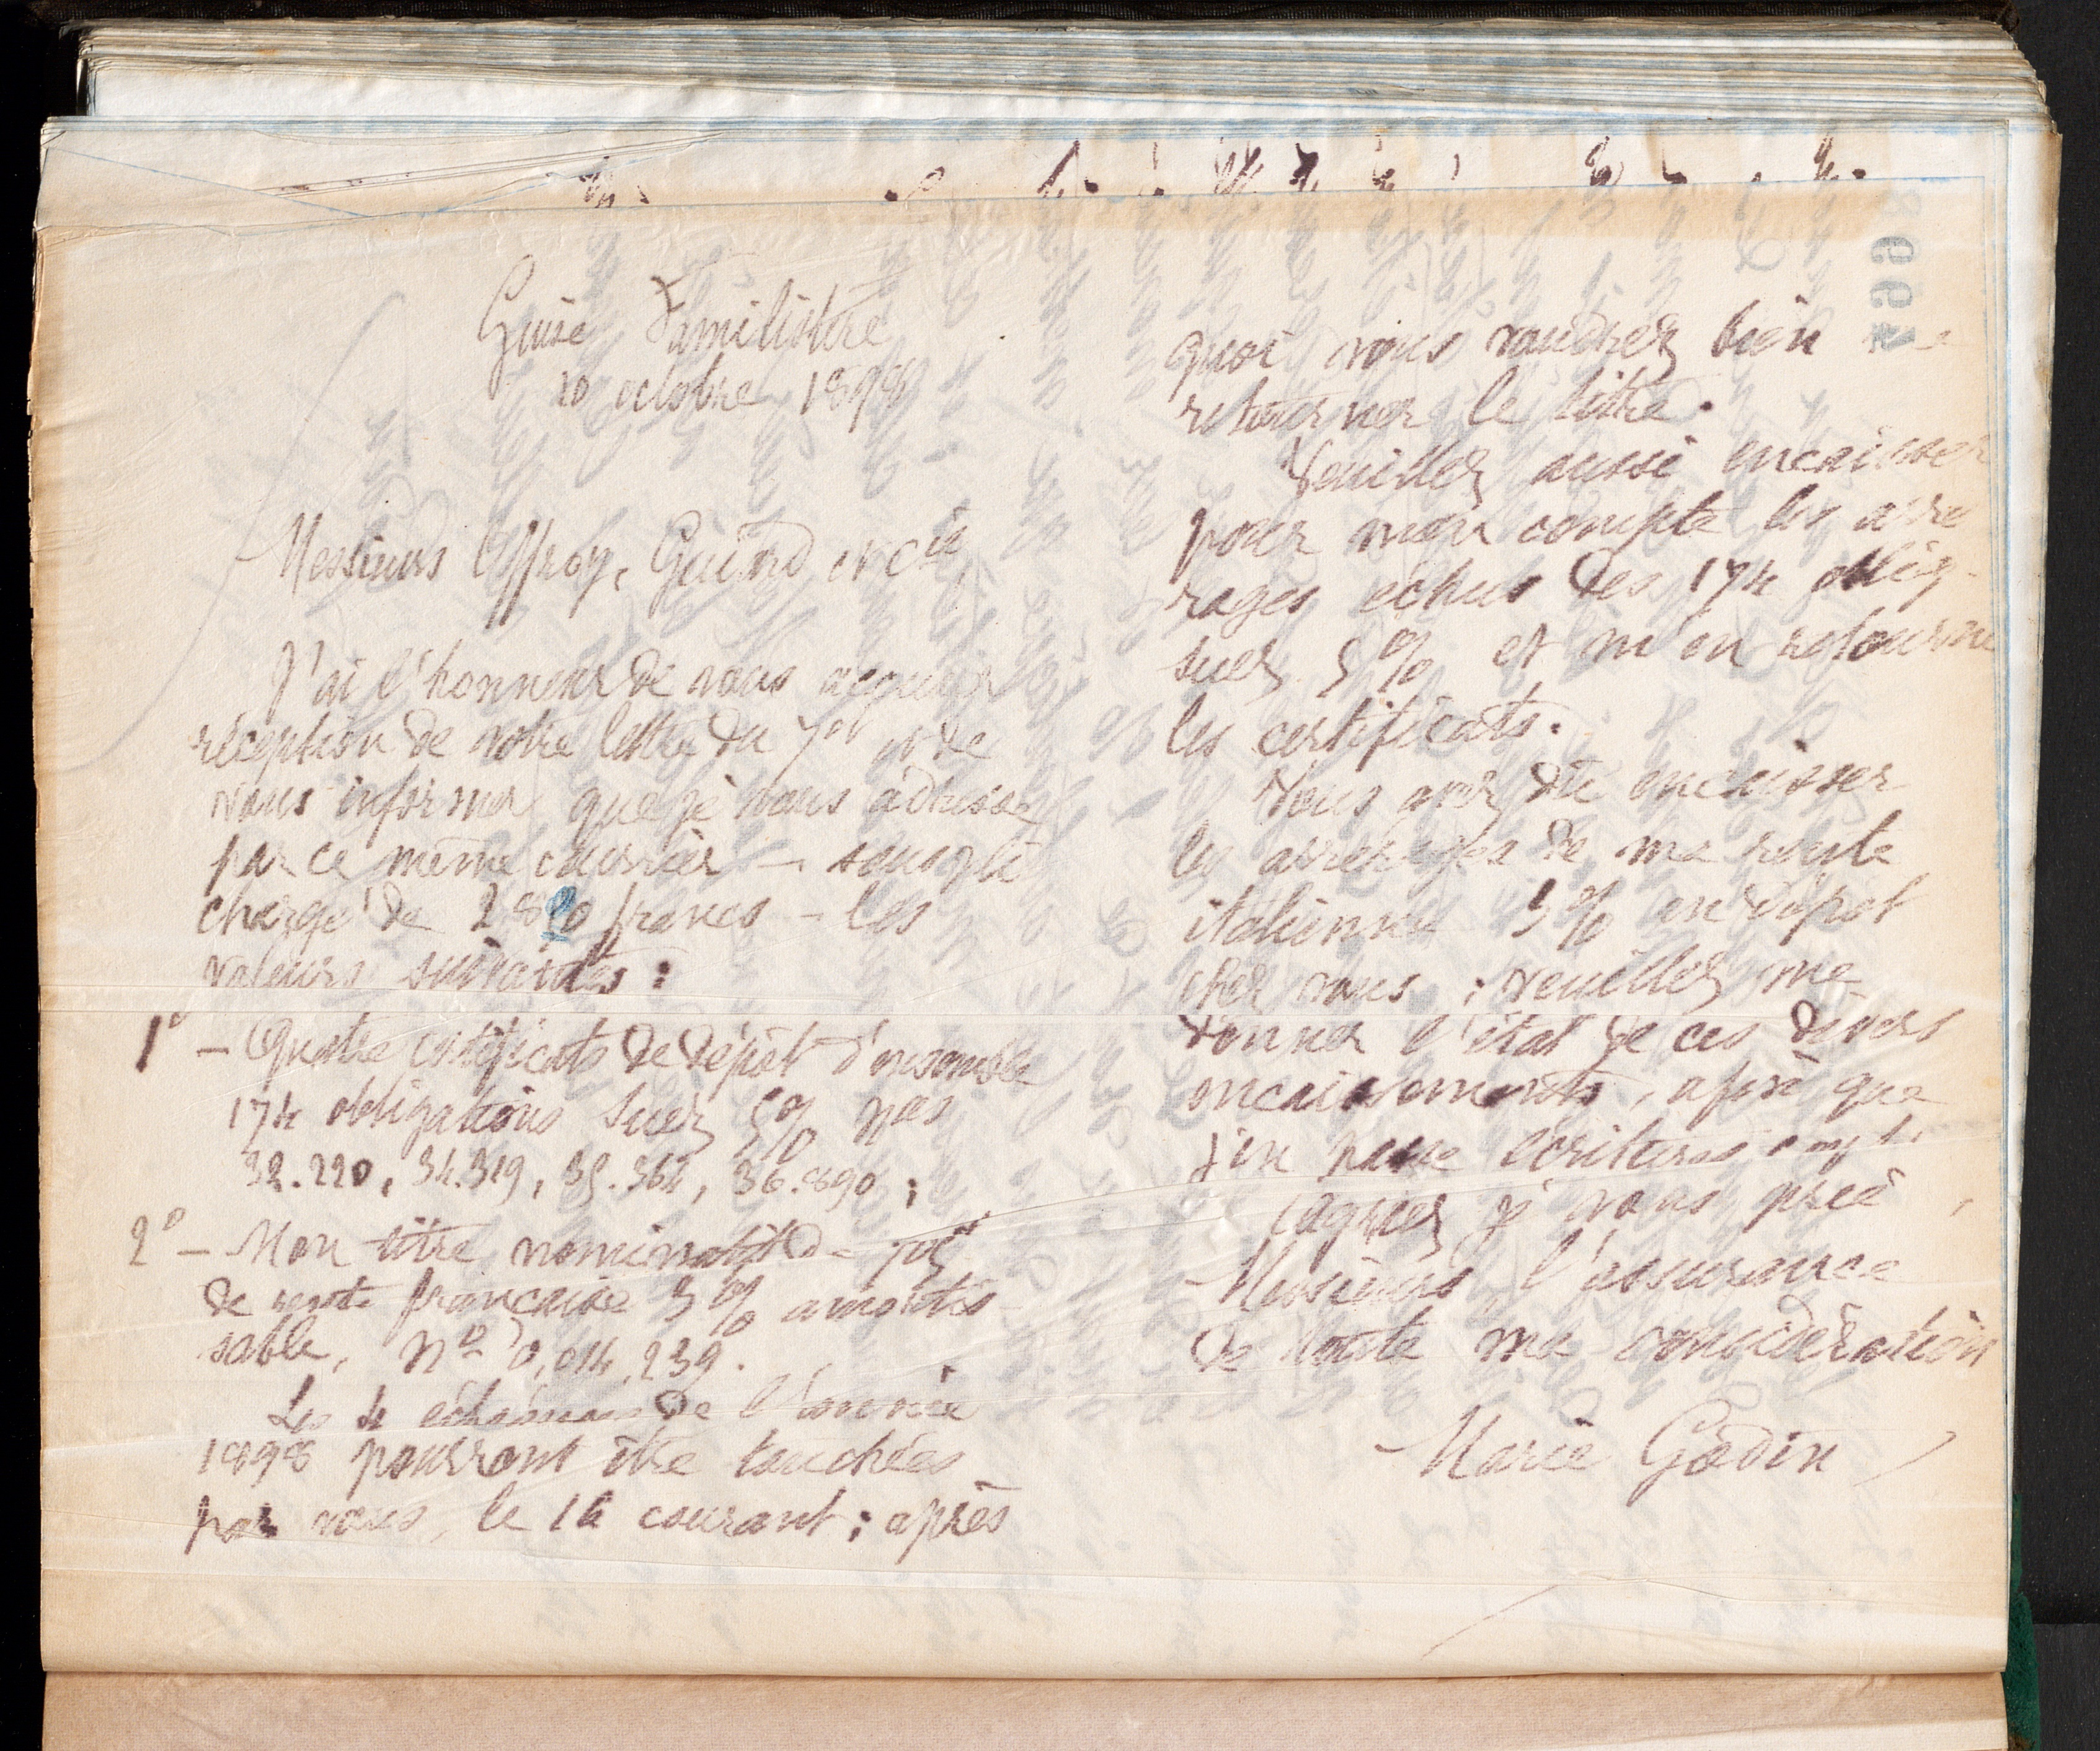 Guise Familistère
10 octobre 1898
Messieurs Offroy, Guiard et Cie,
J'ai l'honneur de vous accuser
réception de votre lettre du 7 et et de
vous informer que je vous adresse
par ce même courrier — sous pli
chargé de 2800 francs — les
valeurs suivantes :
1° — Quatre certificats de dépôt d'ensemble
174 obligations Suez 5% nos
32.220, 34.319, 35.364, 36.890 ;
2° — Mon titre nominatif de
de rente française 3% amortis
sable, No 0,014,239.
Les 4 échéances de l'année
1898 pourront être touchées
par vous, le 16 courant ; après
quoi vous voudrez bien me
retourner le titre.
Veuillez aussi encaisser
pour mon compte les arré
rages échus des 174 oblig-
Suez 5% et m'en retourner
les certificats.
Vous avez dû encaisser
les arrérages de ma rente
italienne 5% en dépôt
chez vous ; veuillez me
donner l'état de ces divers
encaissements, afin que
j'en passe écritures
Agréez je vous prie,
Messieurs l'assurance
de toute ma considération
Marie Godin